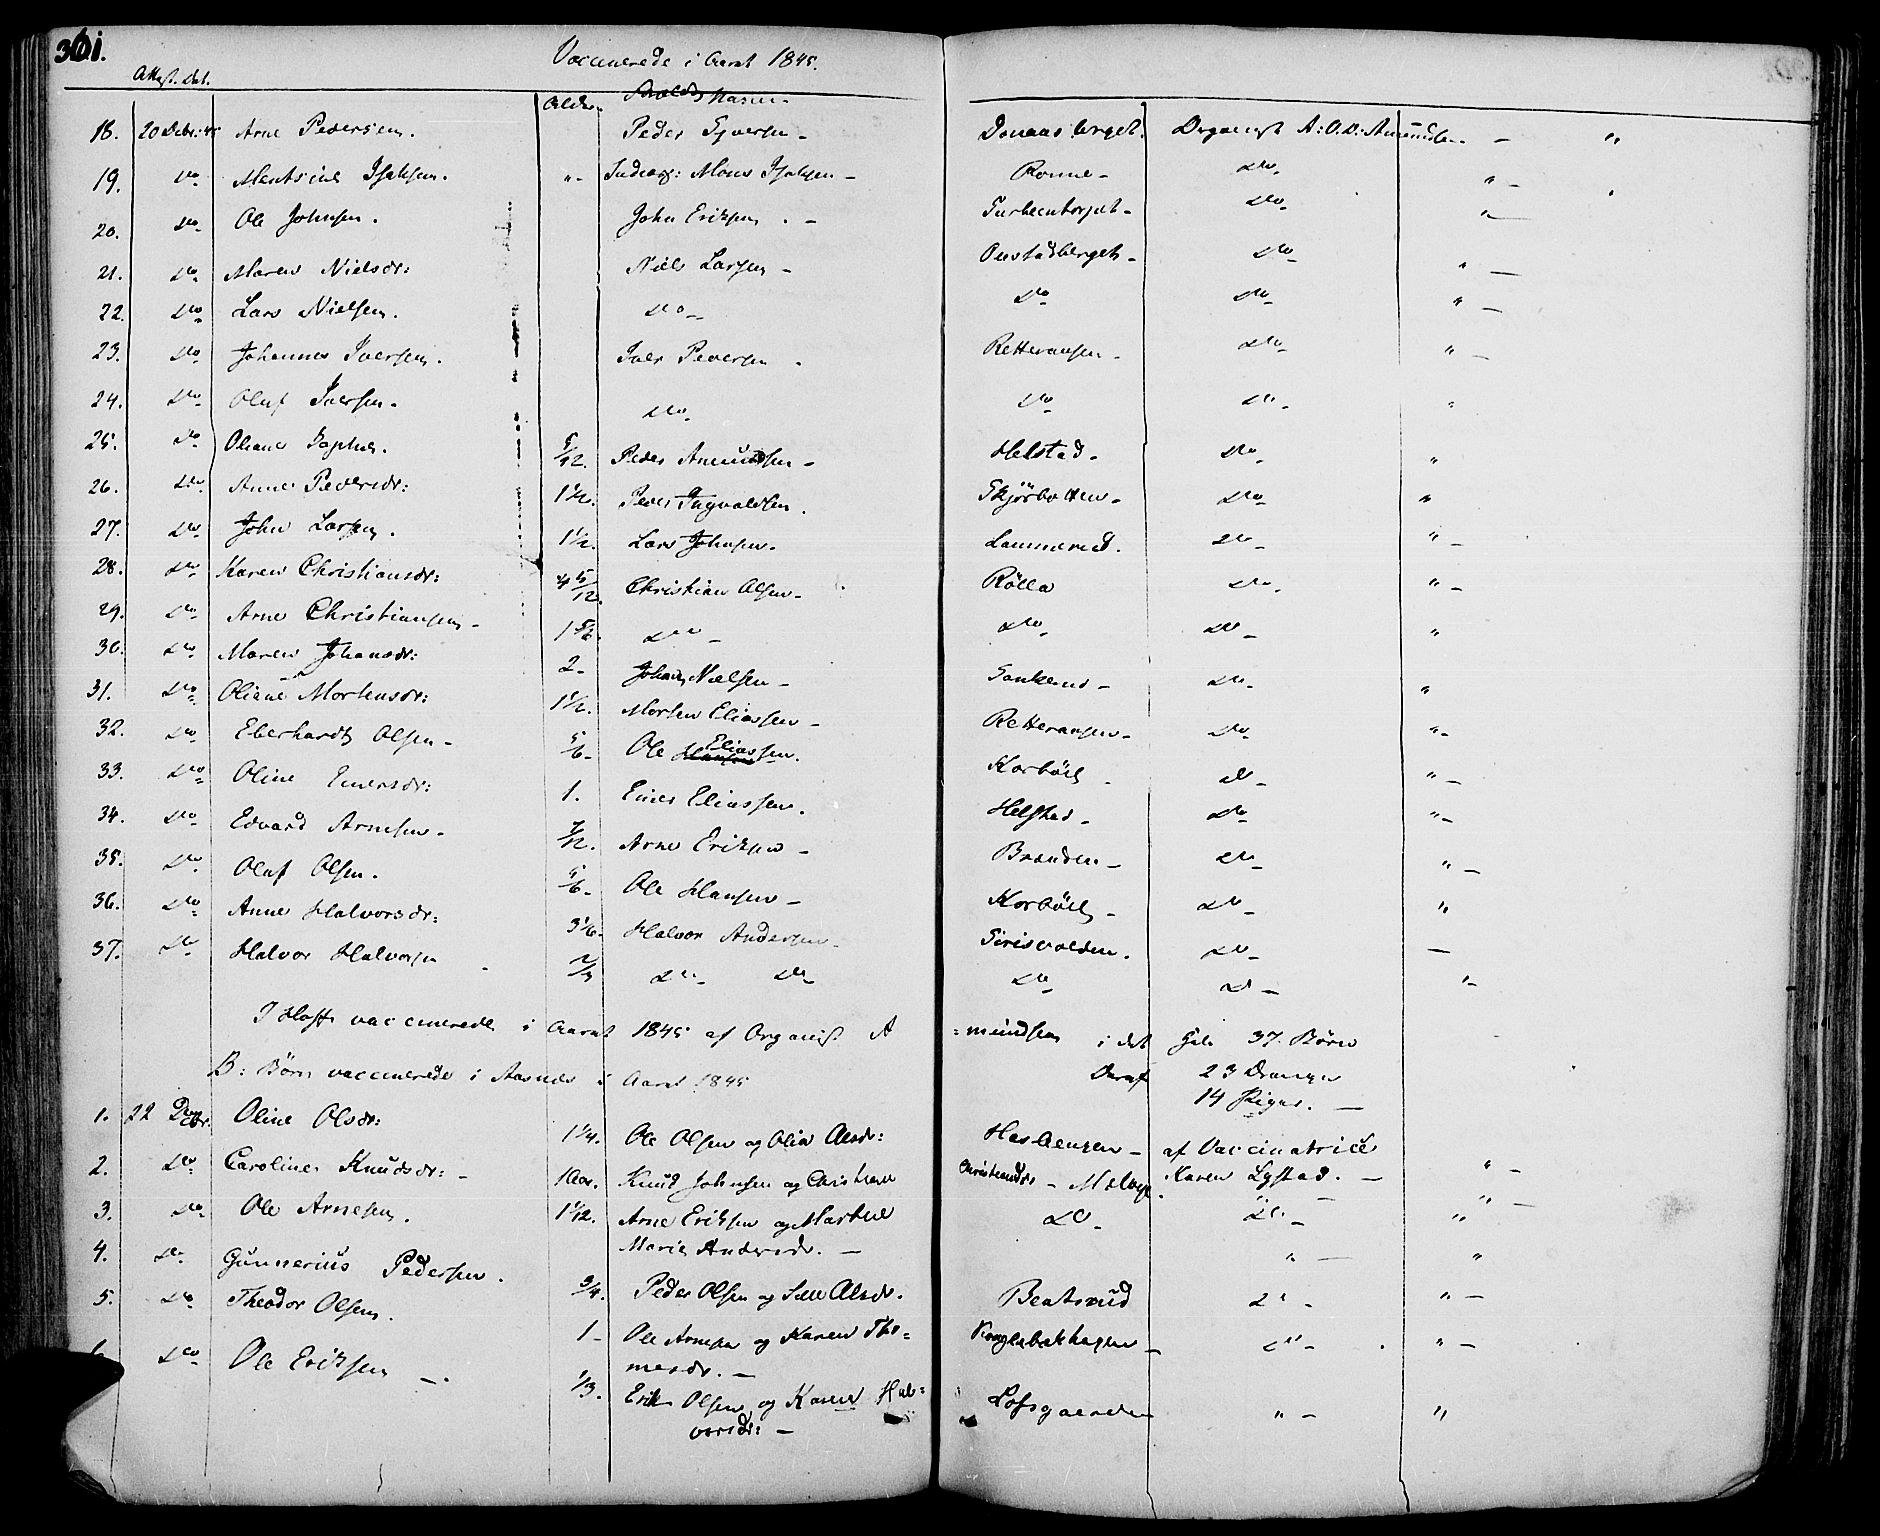 361.
Vaccinerede i Aaret 1845.
Attest. Dat. Alder. Navn
18. 20 Debr: 45 Arne Pedersen. Peder Donaasberget. Organist A: O. D: Amundsen - "
19. Do Isaksen. "- Inderst: Mons Isaksen - Ronne - Do " -
20. Do Ole Johnsen. John Eriksen. - Do " -
21. Do Maren Nielsdr: Niels Larsen - Onstadberget - Do " -
22. Do Lars Nielsen. Do Do Do " -
23. Do Johannes Iversen. Iver Pedersen - Retteraasen - Do " -
24. Do Oluf Iversen. Do Do Do "
25. Do Oliane 5/12. Peder Amundsen - Helstad - Do "
26. Do Anne Pedersdr: 1 1/2. Peder Ingvaldsen. Skjørbotten - Do "
27. Do John Larsen. 1 1/2. Lars Johnsen. Lammerud. Do " -
28. Do Karen Christiansdr: 4 5/12. Christian Olsen - Rölla Do " -
29. Do Arne Christiansen - 1 5/6. Do - Do Do - "
30. Do Maren Johansdr: 2 - Johan Nielsen - Do - "
31. Do Oliane Mortensdr: 1 1/2. Morten Eliassen - Retteraasen - Do "-
32. Do Eberhardt Olsen - 5/6 - Ole Eliassen. Korböel - Do - " -
33. Do Oline Einersdr: 1. Einer Eliassen. Helstad - Do "-
34. Do Edvard Arnesen - 7/12. Arne Eriksen - Braaden - Do - " -
35. Do Oluf Olsen. 5/6 - Ole Hansen - Korböel - Do - "
36. Do Anne Halvorsdr: 3 1/6. Halvor Andersen - Sirisvolden. Do - -
37. Do Halvor Halvorsen 2/3 Do - Do Do - Do - "-
I Hoff vaccinerede i Aaret 1845 af Organist A=mundsen i det Hele 37. Børn
Deraf 23 Drenge
14 Piger. -
B: Børn vaccinerede i Aasnes i Aaret 1845
1. 22 Decbr. Oline Olsdr: 1 1/4. Ole Olsen og Olia Olsdr: - af Vaccinatrice
2. Do Caroline Knudsdr: - 1 Aar. Knud Johnsen og Christiane Christiansdr - Karen Lystad. - " -
3. Do Ole Arnesen. 1 1/12. Arne Eriksen og Marthe Do - Do - "
Marie Andersdr. - " - "
4. Do Gunnerius Pedersen. 3/4. Peder Olsen og Olsdr. Beatsrud Do - " -
5. Do Theodor Olsen. 1 - Ole Arnesen og Karen Tho= Do - " -
mesdr. -
Do Ole Eriksen -. 1/3. Erik Olsen og Karen Hal= Lofsgaarden " - "
vorsdr: -